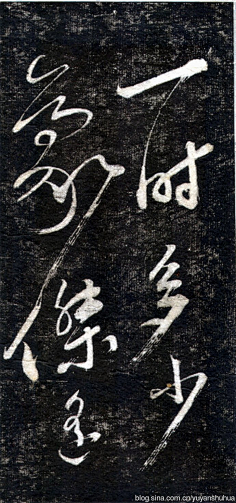 一时多少
豪傑遥
blog.sina.com.cn/yuyanshuhua